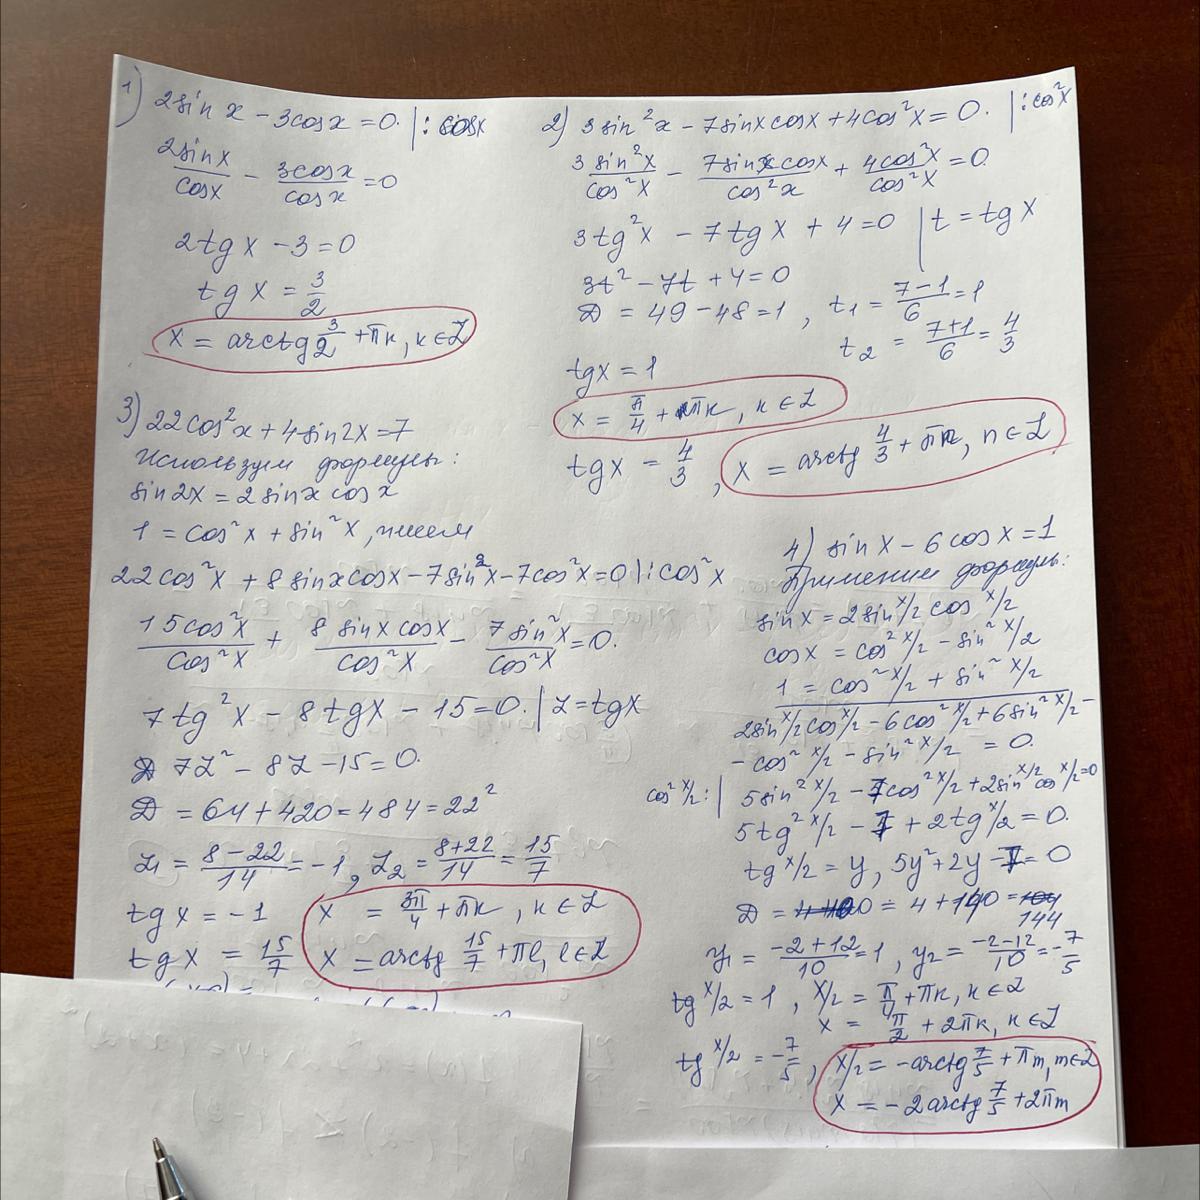 1) 2sin x - 3cosx = 0. | : cosx
2sinx/cosx - 3cosx/cosx = 0
2tgx - 3 = 0
tgx = 3/2
x = arctg 3/2 + πk, k ∈ Z
2) 3sin²x - 7sinxcosx + 4cos²x = 0. | : cos²x
3 sin²x/cos²x - 7sinx cosx/cos²x + 4cos²x/cos²x = 0
3tg²x - 7tgx + 4 = 0 | t = tgx
3t² - 7t + 4 = 0
D = 49 - 48 = 1, t₁ = (7-1)/6 = 1
t₂ = (7+1)/6 = 4/3
tgx = 1
x = π/4 + πk, k ∈ Z
tgx = 4/3, x = arctg 4/3 + πn, n ∈ Z
3) 22cos²x + 4sin2x = 7
Используем формулы:
sin2x = 2sinx cosx
1 = cos²x + sin²x, имеем
22cos²x + 8sinxcosx - 7sin²x - 7cos²x = 0 | : cos²x
15cos²x/cos²x + 8sinx cosx/cos²x - 7sin²x/cos²x = 0.
7tg²x - 8tgx - 15 = 0. | Z = tgx
7Z² - 8Z - 15 = 0.
D = 64 + 420 = 484 = 22²
Z₁ = (8-22)/14 = -1, Z₂ = (8+22)/14 = 15/7
tgx = -1 x = 3π/4 + πk, k ∈ Z
tgx = 15/7 x = arctg 15/7 + πl, l ∈ Z
4) sinx - 6cosx = 1
Применим формулы:
sinx = 2sin x/2 cos x/2
cosx = cos² x/2 - sin² x/2
1 = cos² x/2 + sin² x/2
2sin x/2 cos x/2 - 6cos² x/2 + 6sin² x/2 -
- cos² x/2 - sin² x/2 = 0.
cos² x/2 : | 5sin² x/2 - 7cos² x/2 + 2sin x/2 cos x/2 = 0
5tg² x/2 - 7 + 2tg x/2 = 0.
tg x/2 = y, 5y² + 2y - 7 = 0
D = 4 + 140 = 144
y₁ = (-2+12)/10 = 1, y₂ = (-2-12)/10 = -7/5
tg x/2 = 1, x/2 = π/4 + πk, k ∈ Z
x = π/2 + 2πk, k ∈ Z
tg x/2 = -7/5, x/2 = -arctg 7/5 + πm, m ∈ Z
x = -2arctg 7/5 + 2πm